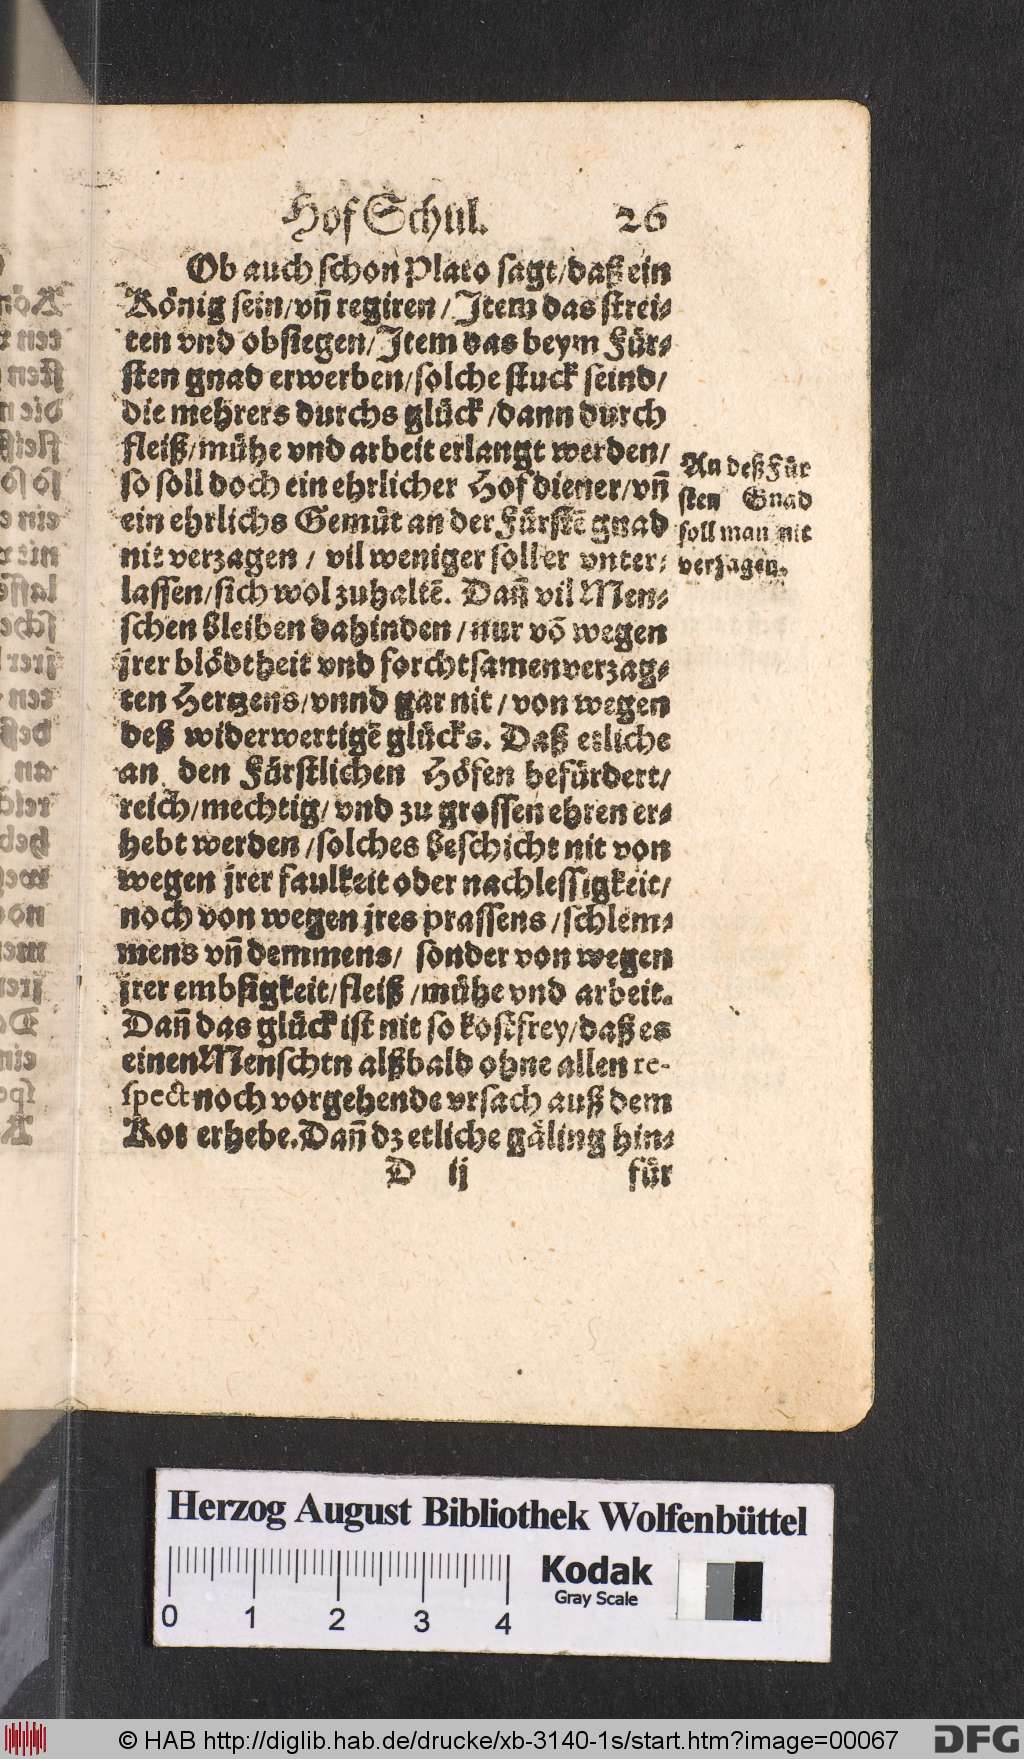 Hof Schul. 26
Ob auch schon Plato sagt/daß ein
König sein/vñ regiren/Item das strei⸗
ten vnd obsiegen/Item das beym Für⸗
sten gnad erwerben/solche stuck seind/
die mehrers durchs glück/dann durch
fleiß/mühe vnd arbeit erlangt werden/
so soll doch ein ehrlicher Hofdiener/vñ
ein ehrlichs Gemüt an der Fürstẽ gnad
nit verzagen/ vil weniger soll er vnter⸗
lassen/sich wol zuhaltẽ. Dañ vil Men⸗
schen bleiben dahinden/nur võ wegen
jrer blödtheit vnd forchtsamen verzag⸗
ten Hertzens/vnnd gar nit/von wegen
deß widerwertigẽ glücks. Daß etliche
an den Fürstlichen Höfen befürdert/
reich/mechtig/vnd zu grossen ehren er⸗
hebt werden/solches beschicht nit von
wegen jrer faulkeit oder nachlessigkeit/
noch von wegen jres prassens/schlem⸗
mens vñ demmens/ sonder von wegen
jrer embsigkeit/fleiß/mühe vnd arbeit.
Dañ das glück ist nit so kostfrey/daß es
einen Menschtn alßbald ohne allen re-
spect noch vorgehende vrsach auß dem
Kot erhebe. Dañ dz etliche gäling hin⸗
D ij für
An deß Für
sten Gnad
soll man nit
verzagen.
Herzog August Bibliothek Wolfenbüttel
0 1 2 3 4
Kodak
Gray Scale
© HAB http://diglib.hab.de/drucke/xb-3140-1s/start.htm?image=00067
DFG